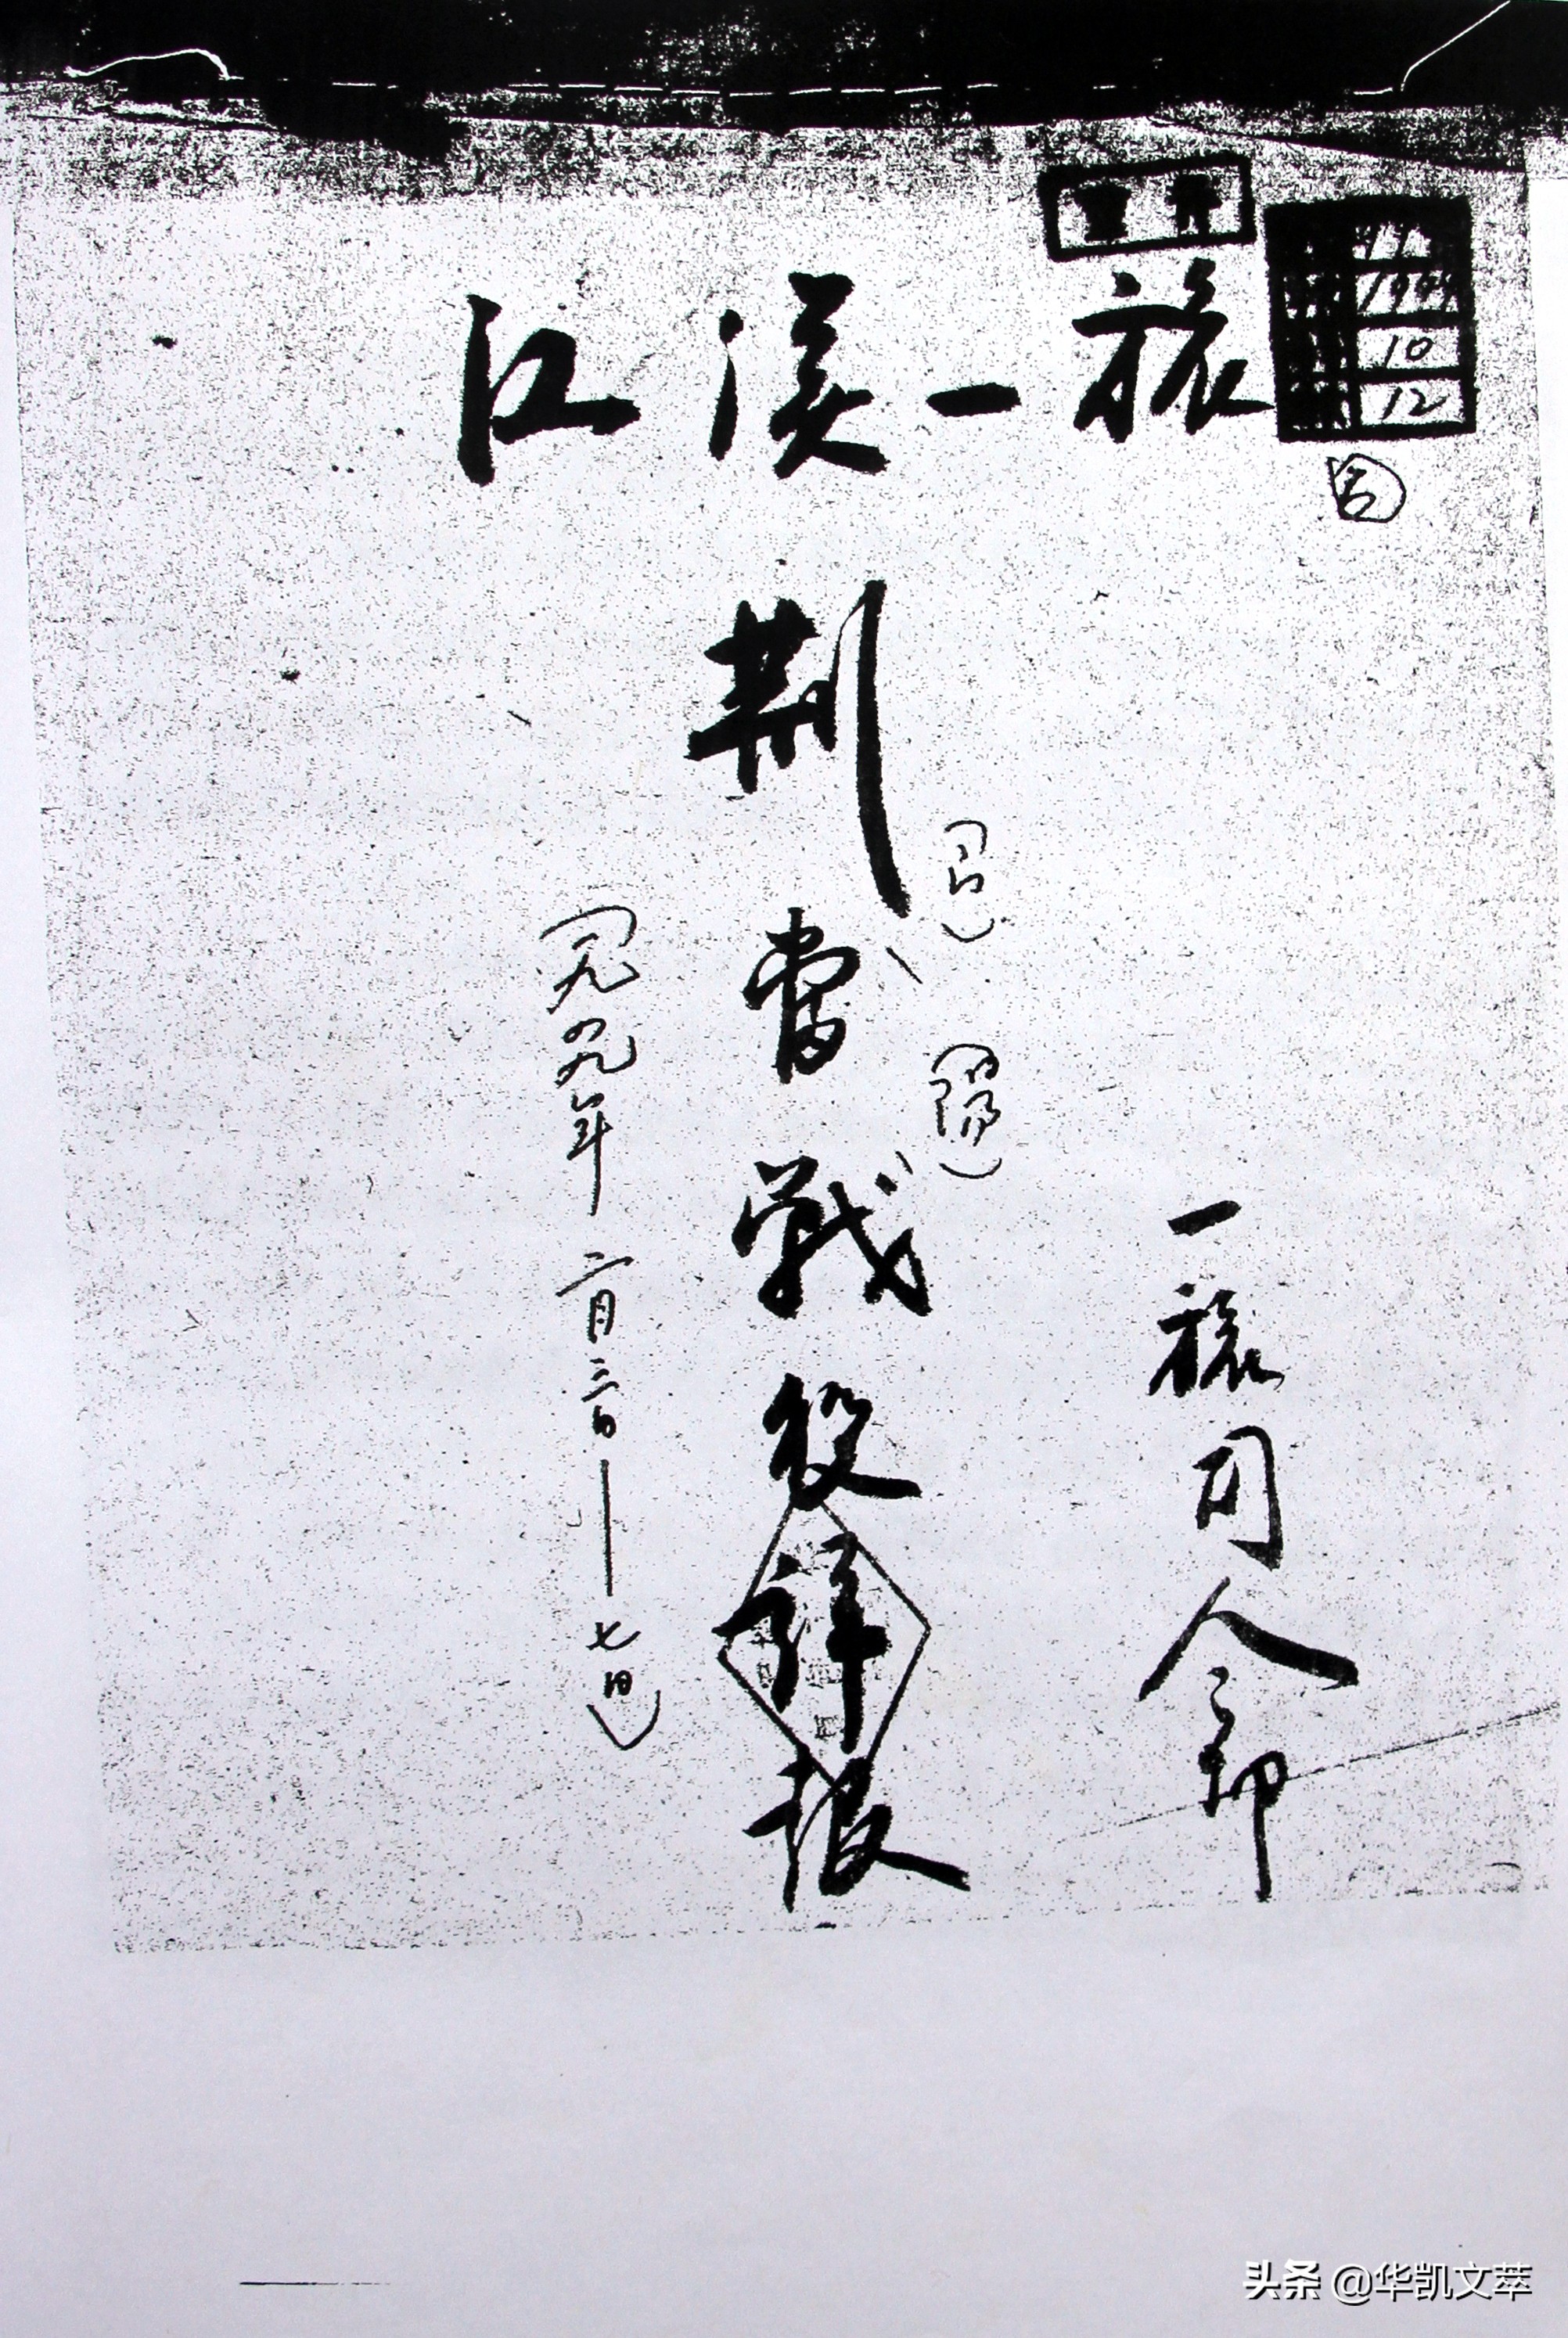 江漢一旅
1949
10
12
一旅司令部
(门)
(陽)
荆當戰役詳報
(一九四九年二月三日—七日)
头条 @华凯文萃